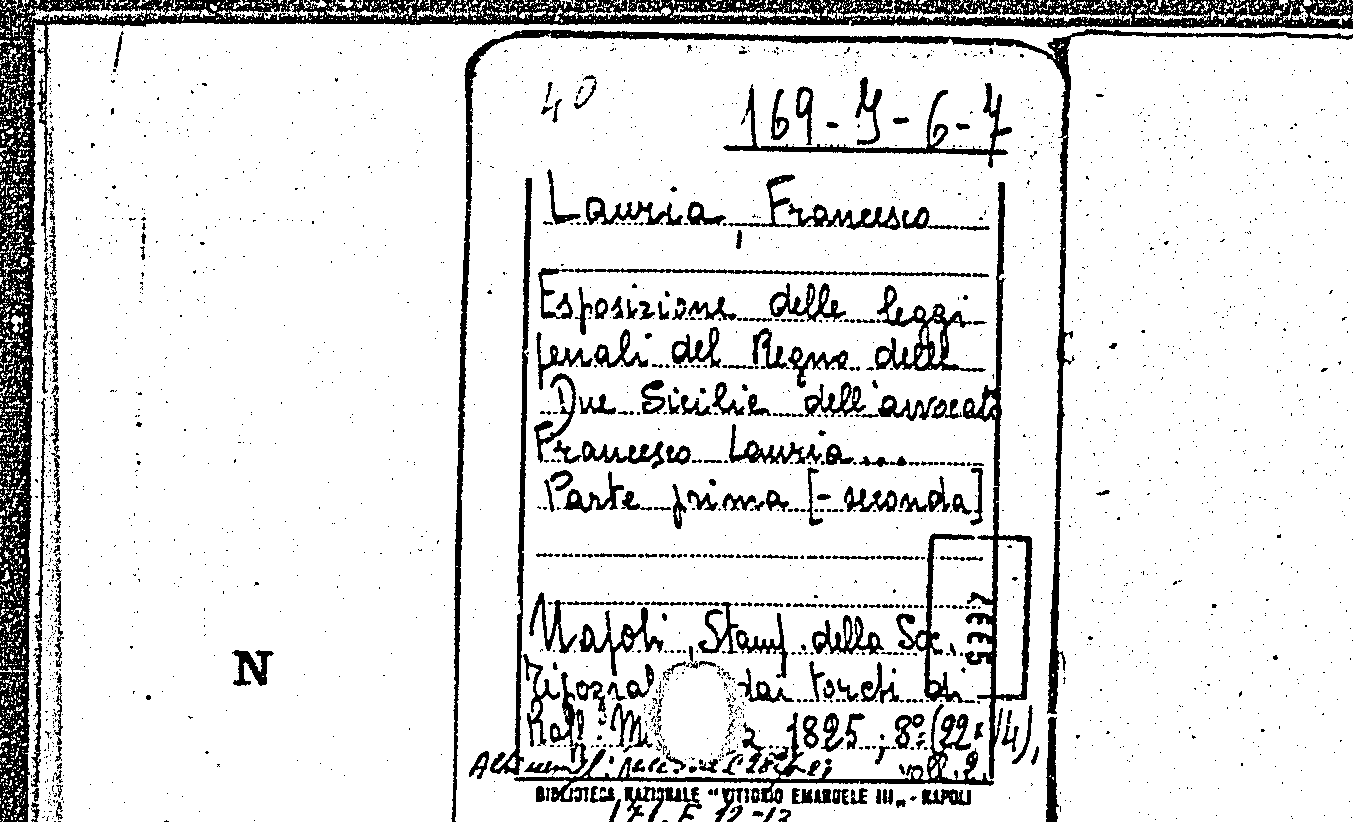 40
169-J-6-7
Lauria, Francesco
Esposizione delle leggi
penali del Regno delle
Due Sicilie dell'avvocato
Francesco Lauria...
Parte prima [-seconda]
Napoli, Stamp. della Soc.
dai torchi di
Raff. 1825, 8° (22x14),
voll. 2.
BIBLIOTECA NAZIONALE "VITTORIO EMANUELE III„ - NAPOLI
N